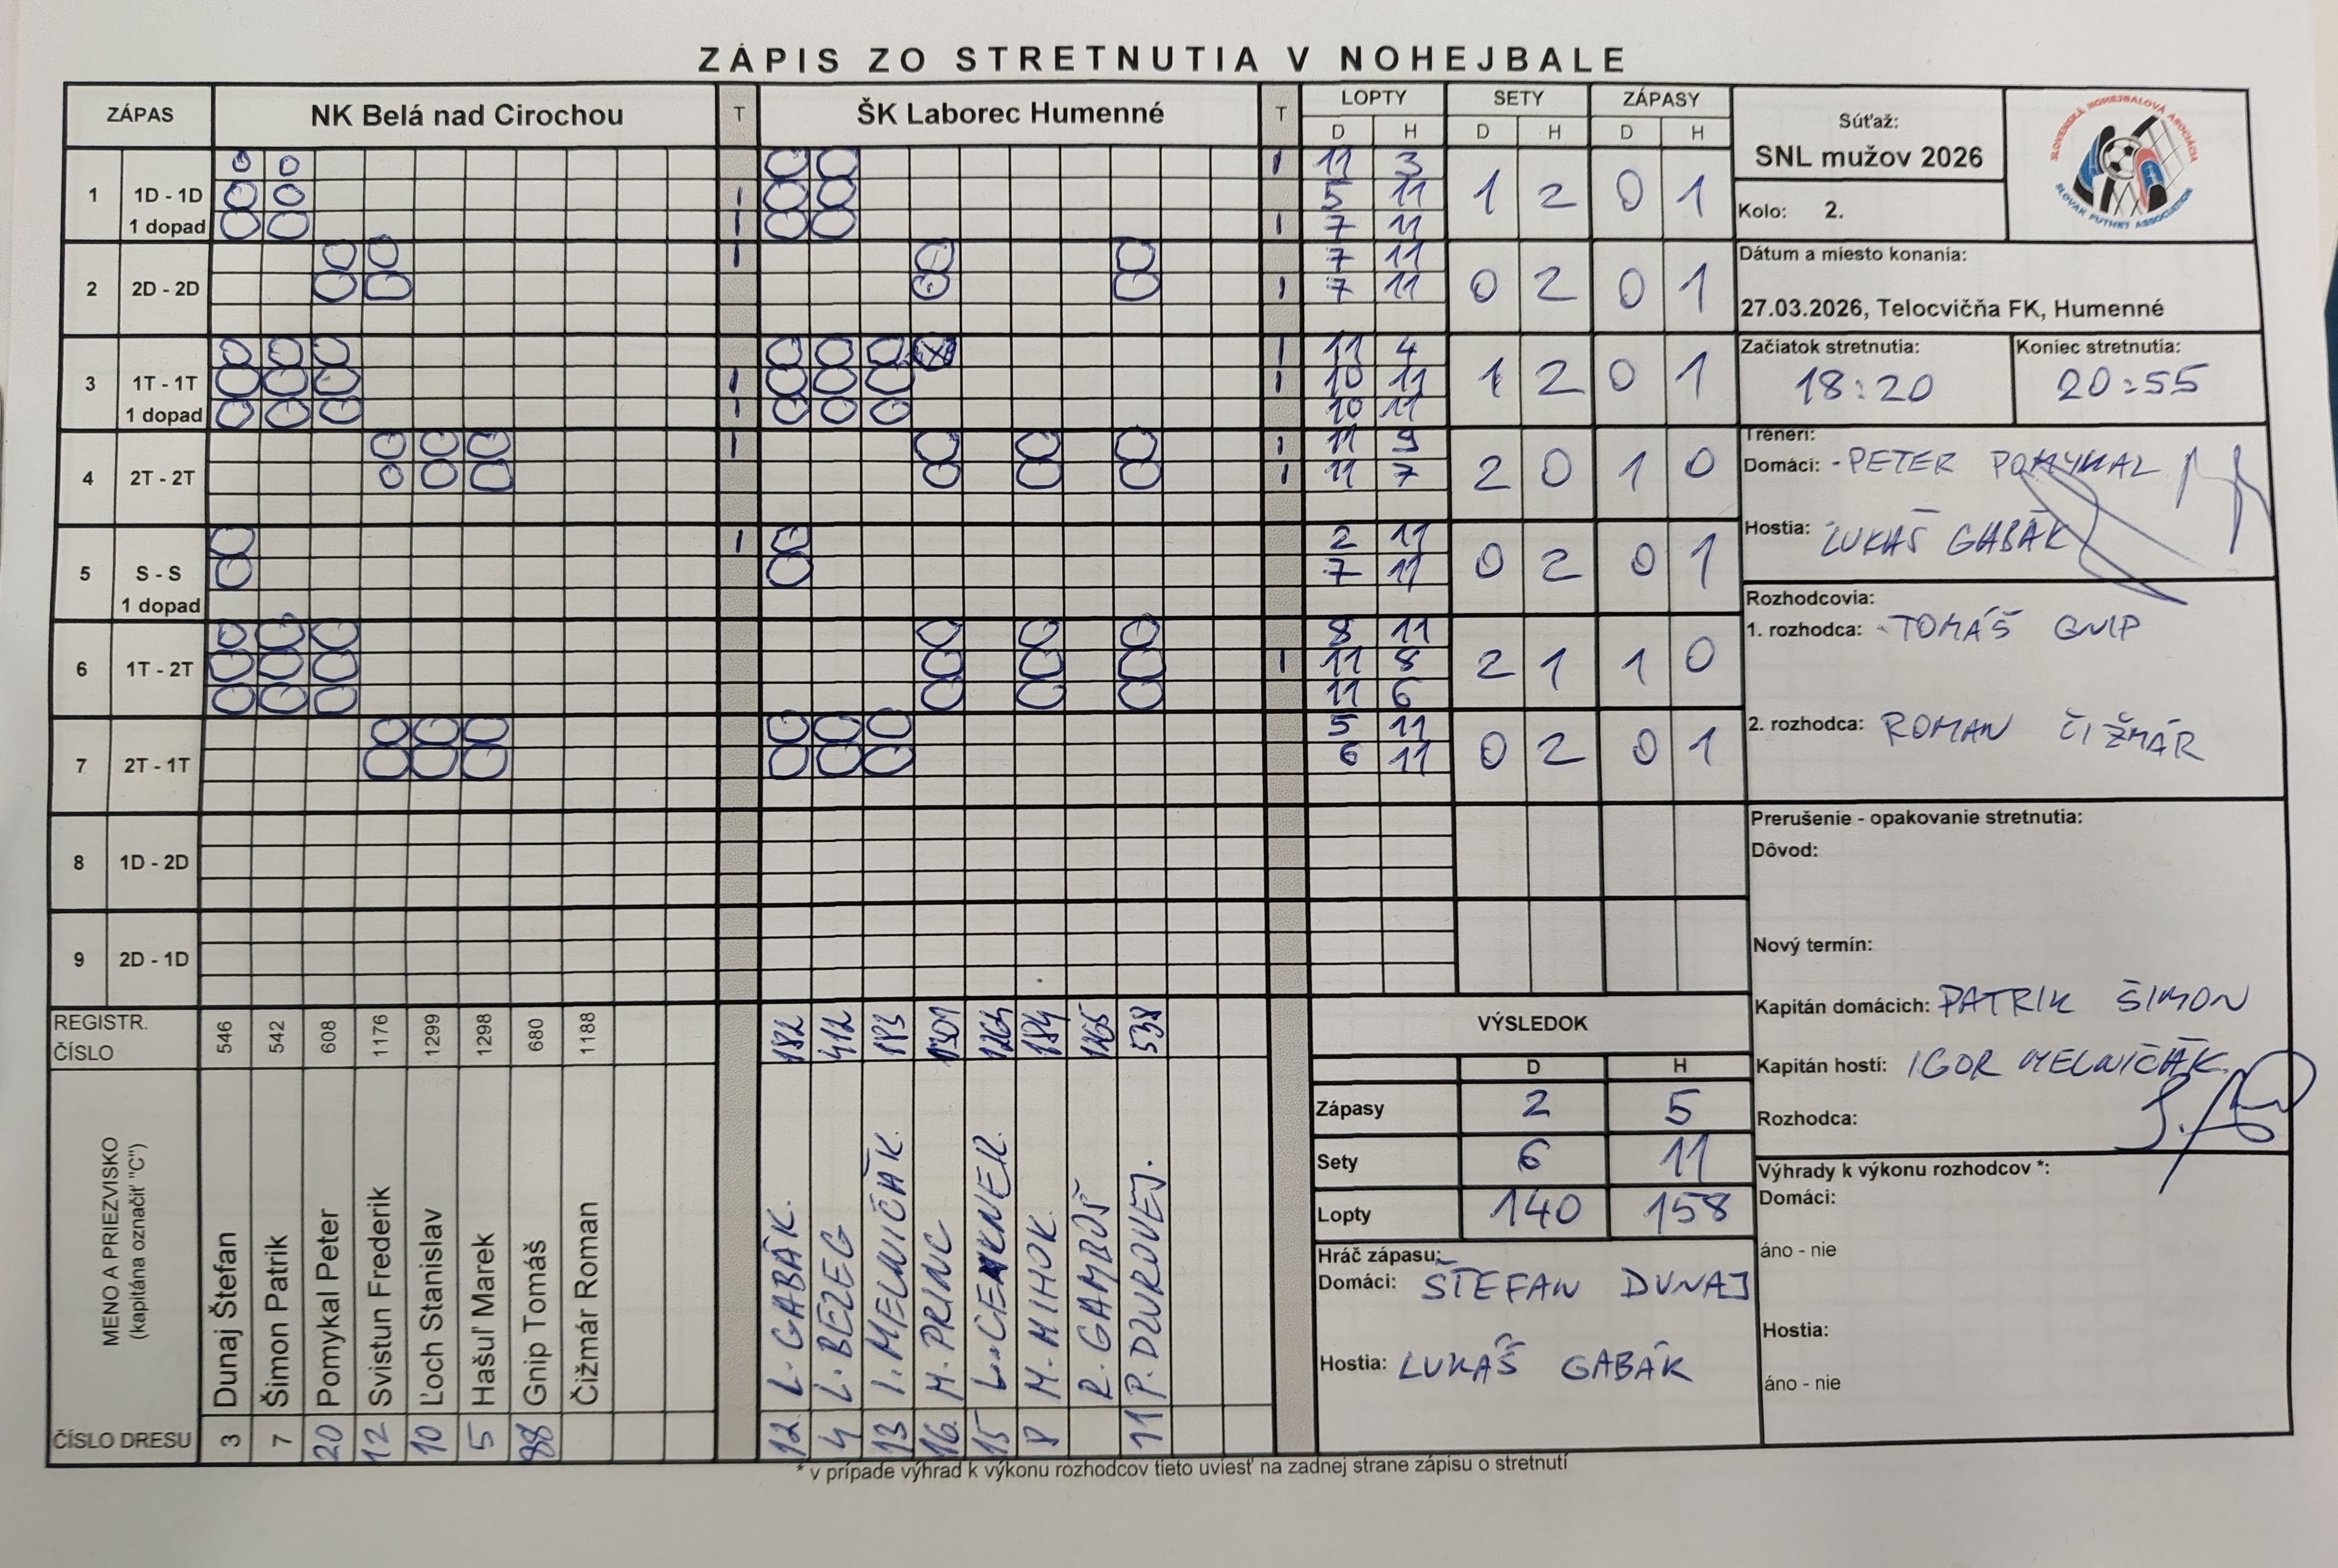 ZÁPIS ZO STRETNUTIA V NOHEJBALE
ZÁPAS NK Belá nad Cirochou T ŠK Laborec Humenné T LOPTY SETY ZÁPASY
D H D H D H
Súťaž:
SNL mužov 2026
Kolo: 2.
SLOVENSKÁ NOHEJBALOVÁ ASOCIÁCIA
SLOVAK FUTNET ASSOCIATION
1 1D - 1D 1 dopad
11 3
5 11
7 11
1 2 0 1
2 2D - 2D
7 11
7 11
0 2 0 1
3 1T - 1T 1 dopad
11 4
10 11
10 11
1 2 0 1
4 2T - 2T
11 9
11 7
2 0 1 0
5 S - S 1 dopad
2 11
7 11
0 2 0 1
6 1T - 2T
8 11
11 8
11 6
2 1 1 0
7 2T - 1T
5 11
6 11
0 2 0 1
8 1D - 2D
9 2D - 1D
Dátum a miesto konania:
27.03.2026, Telocvičňa FK, Humenné
Začiatok stretnutia: Koniec stretnutia:
18:20 20:55
Tréneri:
Domáci: - PETER POMYKAL
Hostia: LUKÁŠ GABÁK
Rozhodcovia:
1. rozhodca: - TOMÁŠ GNIP
2. rozhodca: ROMAN ČIŽMÁR
Prerušenie - opakovanie stretnutia:
Dôvod:
Nový termín:
Kapitán domácich: PATRIK ŠIMON
Kapitán hostí: IGOR MELNIČÁK
Rozhodca:
Výhrady k výkonu rozhodcov *:
Domáci:
áno - nie
Hostia:
áno - nie
REGISTR. ČÍSLO
546 542 608 1176 1299 1298 680 1188
182 412 183 1301 1264 184 1265 538
MENO A PRIEZVISKO
(kapitána označiť "C")
Dunaj Štefan
Šimon Patrik
Pomykal Peter
Svistun Frederik
Ľoch Stanislav
Hašuľ Marek
Gnip Tomáš
Čižmár Roman
L. GABÁK.
L. BEZEG
I. MELNIČÁK.
M. PRINC
M. MIHOK.
R. GAMBOŠ
P. DZUROVEJ.
ČÍSLO DRESU
3 7 20 12 10 5 88
12 4 13 16 15 8 11
VÝSLEDOK
D H
Zápasy 2 5
Sety 6 11
Lopty 140 158
Hráč zápasu:
Domáci: ŠTEFAN DUNAJ
Hostia: LUKÁŠ GABÁK
* v prípade výhrad k výkonu rozhodcov tieto uviesť na zadnej strane zápisu o stretnutí